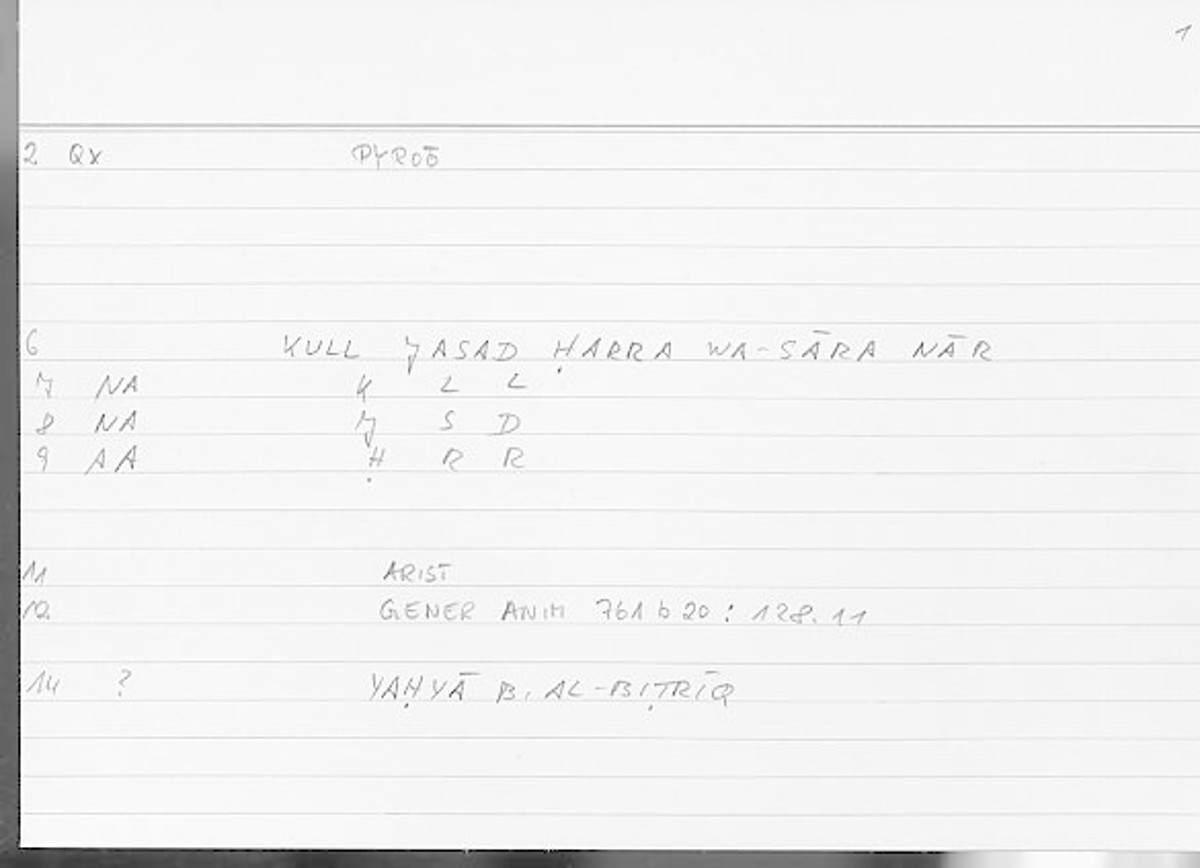 1
2 Qx PYROŌ
6 KULL JASAD ḤARRA WA-SĀRA NĀR
7 NA K L L
8 NA J S D
9 AA Ḥ R R
11 ARIST
12 GENER ANIM 761 b 20 : 128.11
14 ? YAḤYĀ B. AL-BIṬRĪQ